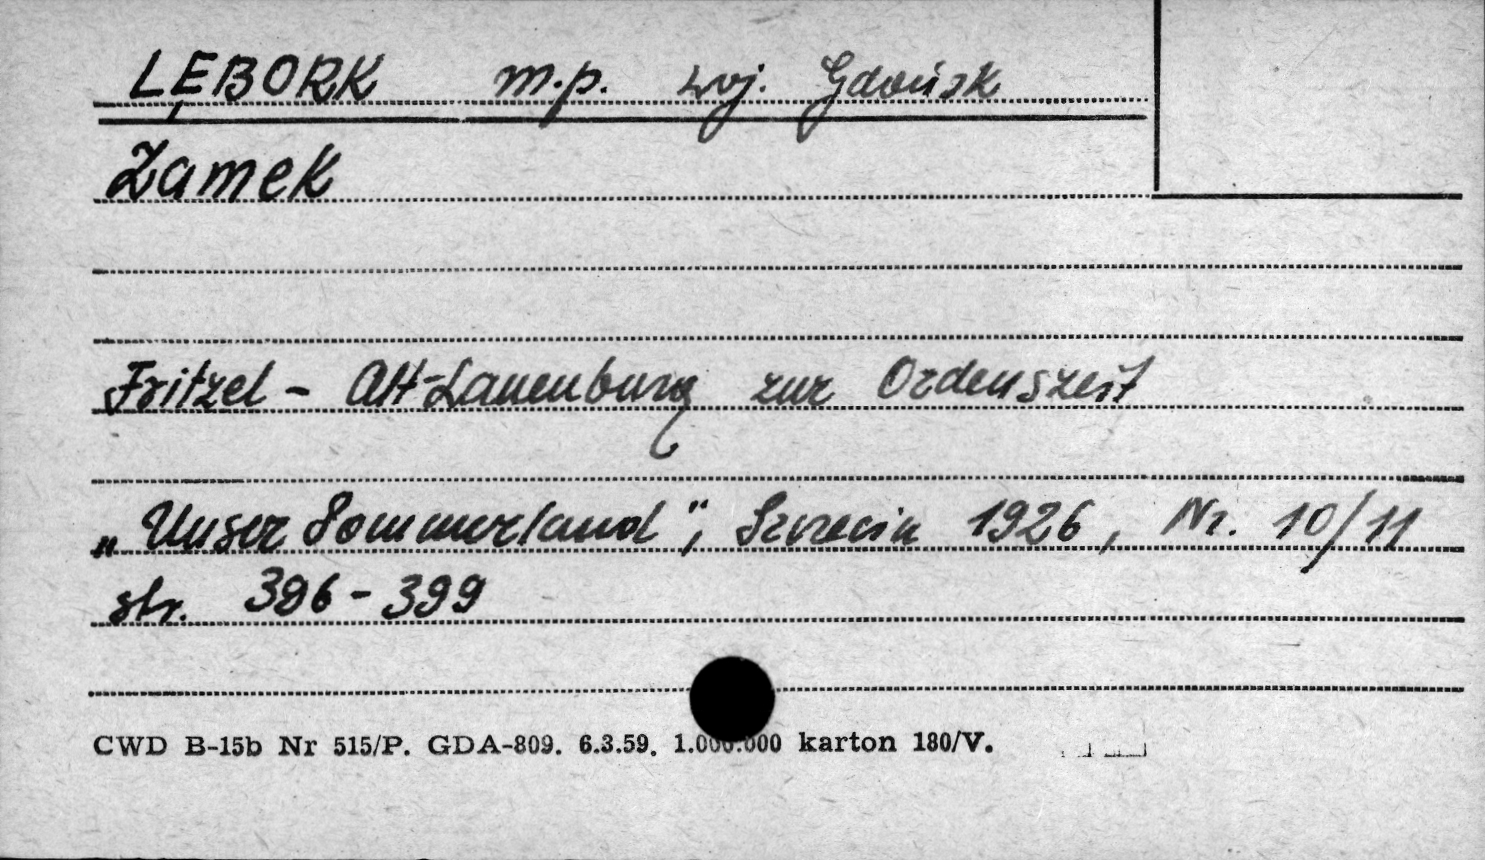 LĘBORK m.p. woj. Gdańsk
Zamek
Fritzel - Alt-Lauenburg zur Ordenszeit
„Unser Sommerland", Szczecin 1926, Nr. 10/11
str. 396-399
CWD B-15b Nr 515/P. GDA-809. 6.3.59. 1.000.000 karton 180/V.